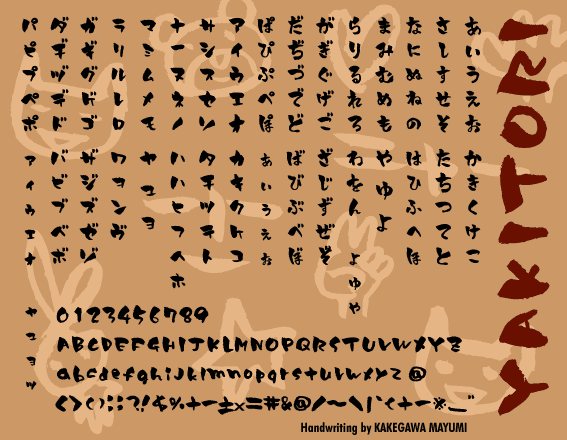 YAKITORI
あいうえお
かきくけこ
さしすせそ
たちつてと
なにぬねの
はひふへほ
まみむめも
やゆよ
らりるれろ
わをん ょゅゃ
がぎぐげご
ざじずぜぞ
だぢづでど
ばびぶべぼ
ぱぴぷぺぽ
ぁぃぅぇぉ
アイウエオ
カキクケコ
サシスセソ
タチツテト
ナニヌネノ
ハハヒフヘホ
マミムメモ
ヤユヨ
ラリルレロ
ワヲンヴ
ガギグゲゴ
ザジズゼゾ
ダヂヅデド
バビブベボ
パピプペポ
ァィゥェォ
ャュョッ
0123456789
ABCDEFGHIJKLMNOPQRSTUVWXYZ
abcdefghijklmnopqrstuvwxyz@
Handwriting by KAKEGAWA MAYUMI